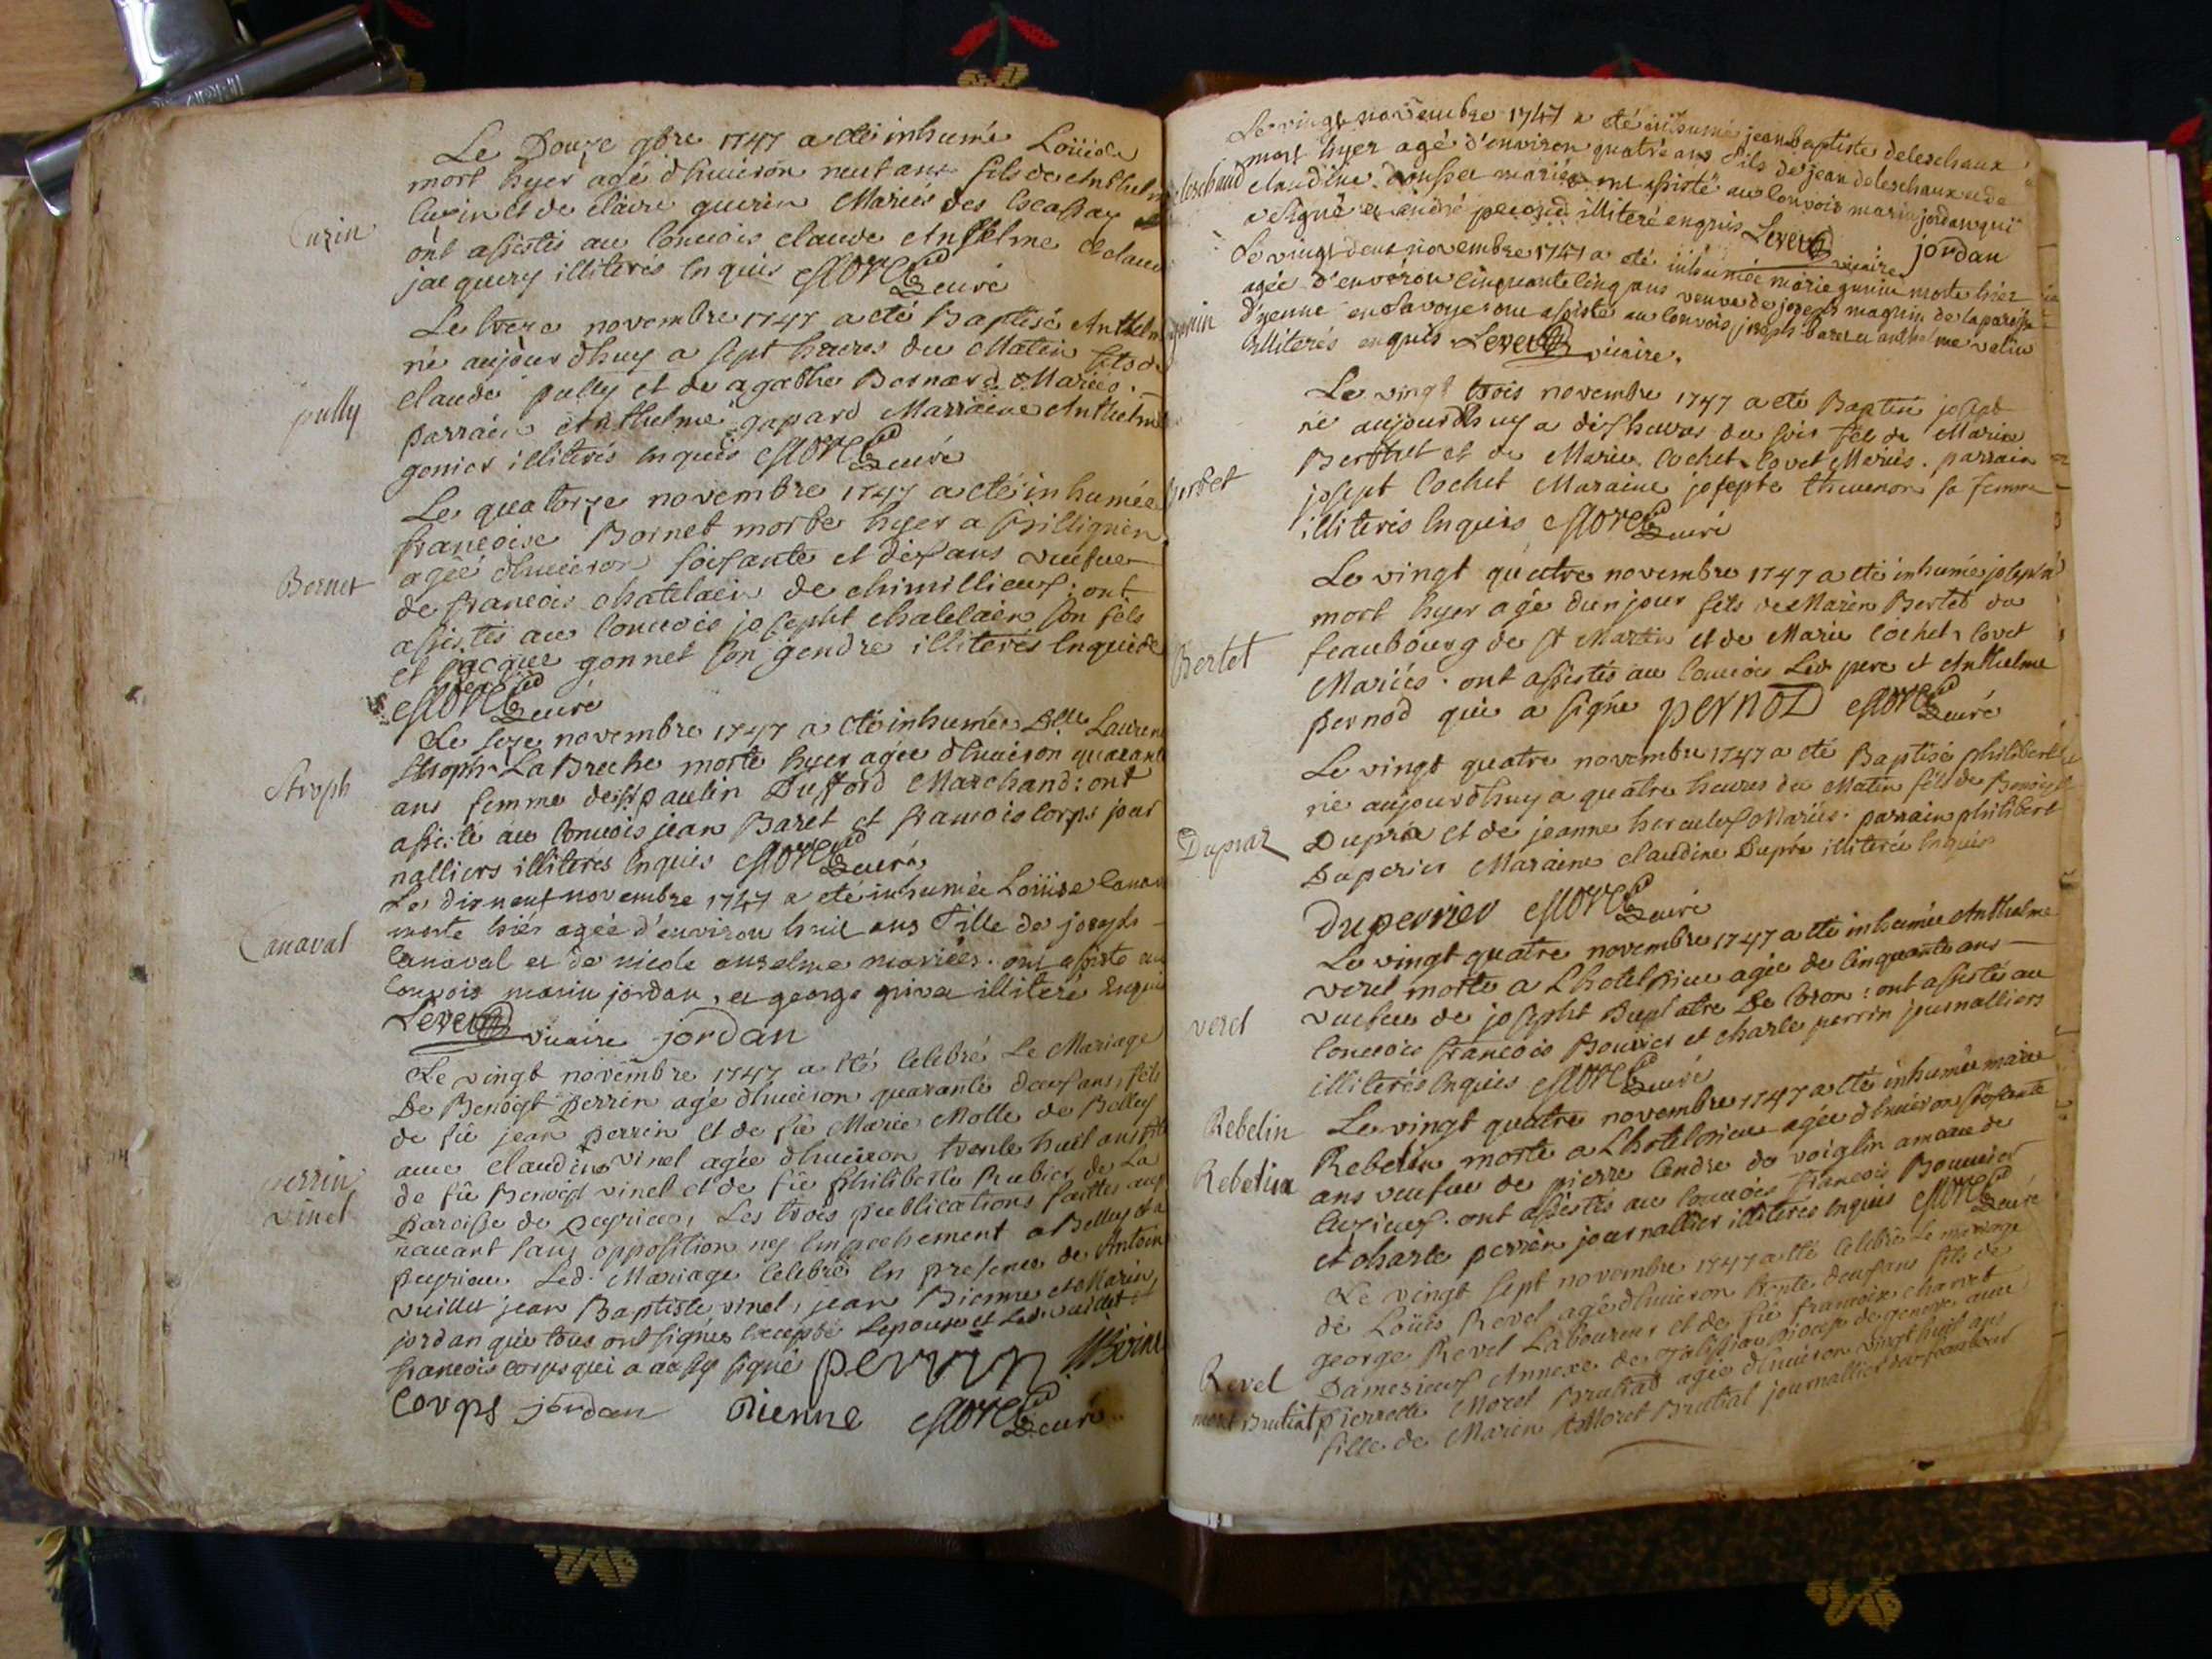 Le Douze 9bre 1747 a eté inhumé Loüis
mort hyer agé d'huiron neuf ans fils de Anthel
Cuzin
Cuzin et de claire guerin Mariés des
ont assistés au Convois claude Anthelme et claud
jacquery illiterés Enquis curé
Le treze novembre 1747 a eté Baptisé Anthelm
né aujourdhuy a sept heures du Matin fils de
pully
claude pully et de agathe Bernard Mariés.
parrain Anthelme gapard Marraine Anthelm
genier illiterés Enquis curé
Le quatorze novembre 1747 a eté inhumée
francoise Bornet morte hyer a
Bornet
agée d'huiron soixante et dix ans veufue
de francois chatelain de chimillieux: ont
assistés au Convois josepht chatelain son fils
et jacque gonnet son gendre illiterés Enquis de
curé
Le seze novembre 1747 a eté inhumée Dlle Lauren
Stroph
Stroph La Breche morte hyer agée d'huiron quarant
ans femme de Sr paulin Dufford Marchand: ont
assisté au Convois jean Baret et francois Corps jour
nalliers illiterés Enquis curé
Le dixneuf novembre 1747 a eté inhumée Loüise Canav
Canaval
morte hiér agée d'environ huit ans fille de joseph
Canaval et de nicole anselme mariées. ont assisté au
Convois marin jordan, et george grivet illiteré Enquis
vicaire jordan
Le vingt novembre 1747 a eté Celebré Le Mariage
De Benoist Perrin agé d'huiron quarante deux ans, fils
de fü jean perrin et de fü Marie Molle de Belley
perrin
vinet
auec claudine vinet agée d'huiron trente huit ans fille
de fü Benoist vinet et de fü philiberte Rubier de La
paroisse de peyrieu, Les trois publications faittes aup
rauant sans opposition ny Empechement a Belley et a
peyrieu Led. Mariage Celebré En présence de Antoin
vuillet jean Baptiste vinet, jean Bienne et Marin
jordan qui tous ont signés Excepté Lepouse et Led. vuillet et
francois corps qui a aussy signé perrin
Corps jordan Bienne curé
Le vingt novembre 1747 a eté inhumé jean baptiste deleschaux
mort hyer agé d'environ quatre ans fils de jean deleschaux et de
claudine mariés ont assisté au Convois marin jordan qui
a signé et andré illiteré enquis vicaire jordan
Le vingt deux novembre 1747 a eté inhumée marie morte hier
agée d'environ Cinquante Cinq ans veuve de joseph magnin de la paroisse
d'yenne en Savoye ont assisté au Convois joseph et anthelme
illiterés enquis vicaire.
Le vingt trois novembre 1747 a eté Baptisé josept
né aujourdhuy a dix heures du soir fils de Marin
Bertet
Berthet et de Marie Cochet Covet Mariés. parrain
josept Cochet Maraine josepte thevenon sa femme
illiterés Enquis curé
Le vingt quatre novembre 1747 a eté inhumé josepht
mort hyer agé dun jour fils de Marin Bertet du
Bertet
feaubourg de St Martin et de Marie Cochet Covet
Mariés. ont assistés au Convois Led. pere et Anthelme
pernod qui a signé pernod curé
Le vingt quatre novembre 1747 a eté Baptisé philibert
né aujourdhuy a quatre heures du Matin fils de Benoist
Dupraz
Dupra et de jeanne hercules Mariés. parrain philibert
Duperier Maraine claudine Dupra illiterée Enquis
Duperrier curé
Le vingt quatre novembre 1747 a eté inhumée Anthelme
veret
veret morte a Lhotel Dieu agée de Cinquante ans
veufue de josepht Duplatre De Coron: ont assistés au
Convois francois Bouvier et charle perrin journalliers
illiterés Enquis curé
Le vingt quatre novembre 1747 a eté inhumée marie
Rebelin
Rebelin
Rebelin morte a Lhotel Dieu agée d'huiron soixante
ans veufue de pierre Cendre de voiglin de
Cuzieux. ont assistés au Convois francois Bouuier
et charle perrin journallier illiterés Enquis curé
Le vingt sept novembre 1747 a eté Celebré Le mariage
de Loüis Revel agé d'huiron trente deux ans fils de
george Revel Laboureur et de fü francoise charvet
Revel
Damesieux Annexe de Talissieu Diocese de geneve auec
moret Brutiat
pierrette Moret Brutiat agée d'huiron vingt huit ans
fille de Marin Moret Brutiat journallier